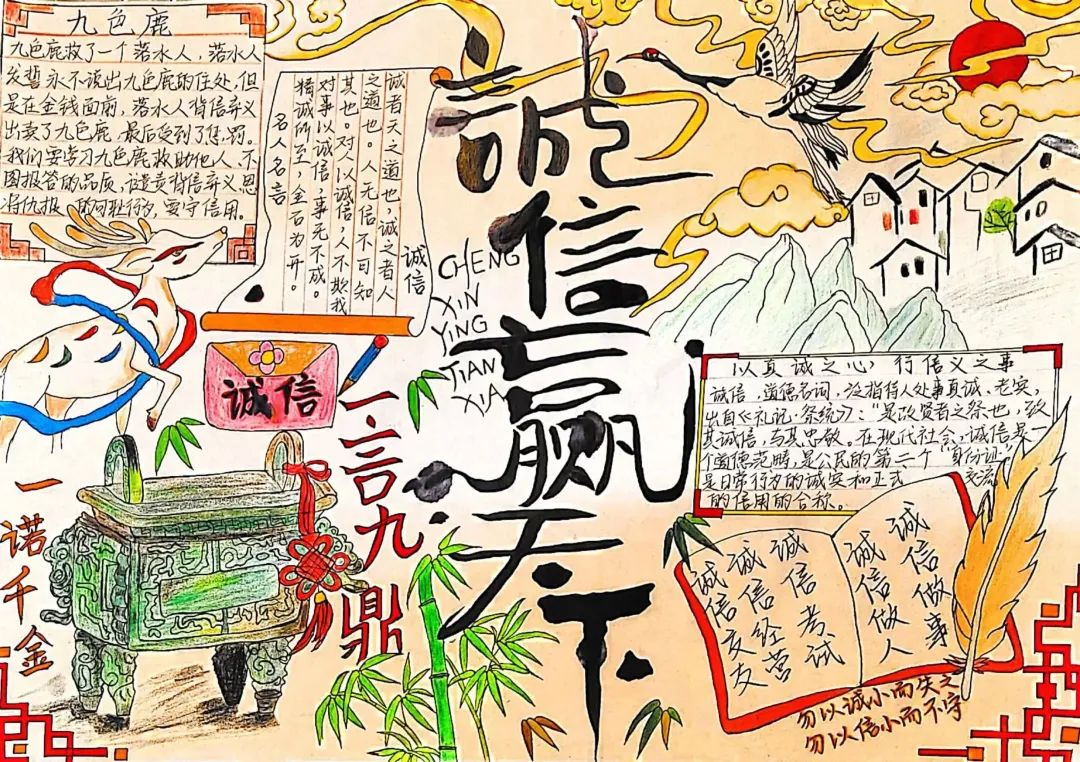 九色鹿
九色鹿救了一个落水人，落水人
发誓永不说出九色鹿的住处，但
是在金钱面前，落水人背信弃义
出卖了九色鹿，最后受到了惩罚。
我们要学习九色鹿救助他人、不
图报答的品质，谴责背信弃义、恩
将仇报的可耻行为，要守信用。
诚信
诚者天之道也，诚之者人
之道也。人无信不可知
其也。对人以诚信，人不欺我
对事以诚信，事无不成。
精诚所至，金石为开。
名人名言
誠信赢天下
CHENG
XIN
YING
TIAN
XIA
诚信
一言九鼎
一诺千金
以真诚之心 行信义之事
诚信，道德名词，泛指待人处事真诚、老实，
出自《礼记·祭统》：“是故贤者之祭也，致
其诚信，与其忠敬。在现代社会，诚信是一
个道德范畴，是公民的第二个“身份证”
是日常行为的诚实和正式 交流
的信用的合称。
诚信考试
诚信经营
诚信交友
诚信做事
诚信做人
勿以诚小而失之
勿以信小而不守